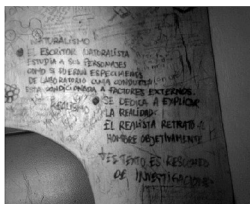 NATURALISMO
EL ESCRITOR NATURALISTA
ESTUDIA A SUS PERSONAJES
COMO SI FUERAN ESPECIMENES
DE LABORATORIO CUYA CONDUCTA
ESTA CONDICIONADA A FACTORES EXTERNOS.
REALISMO
SE DEDICA A EXPLICAR
LA REALIDAD.
EL REALISTA RETRATO A
HOMBRE OBJETIVAMENTE
TEXTO ES RESUMEN
DE INVESTIGACION